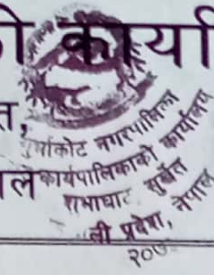 की कार्या
त,
नगरपालिका
ल कार्यपालिकाको कार्यालय
सुर्खेत
प्रदेश, नेपाल
२०७